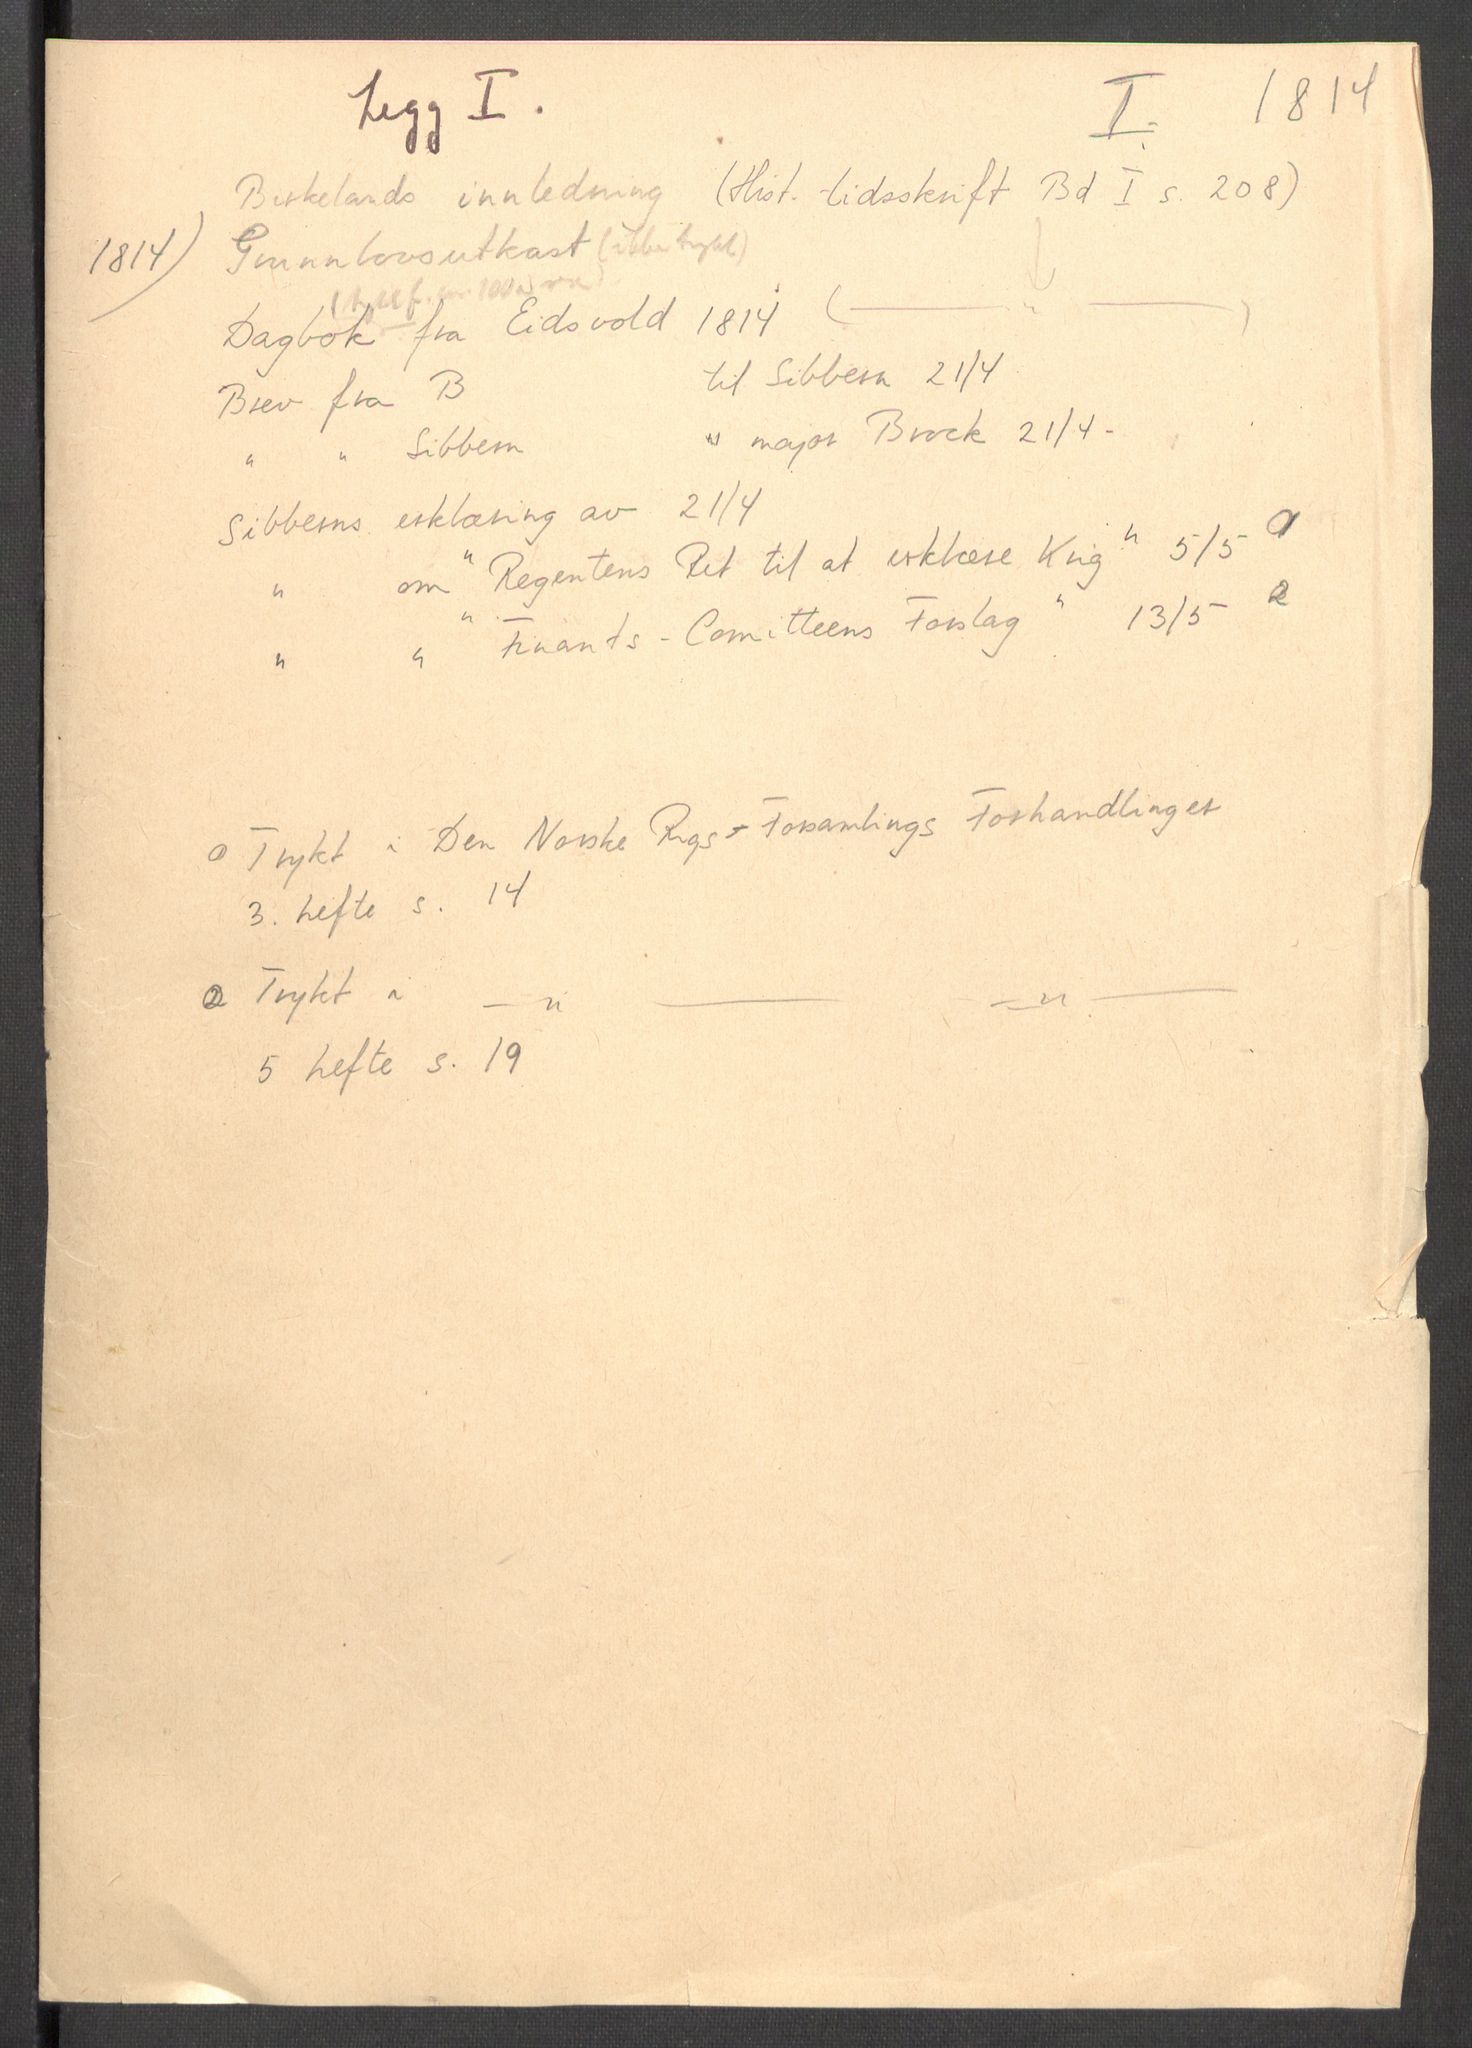 Legg I.
I. 1814
Birkelands innledning (Hist. tidsskrift Bd I s. 208)
1814) Grunnlovsutkast (ikke trykt)
Dagbok fra Eidsvold 1814 ( — " — )
Brev fra B til Sibbern 21/4
" " Sibbern " major Brock 21/4 -
Sibberns erklæring av 21/4
" om "Regentens Ret til at erklære Krig" 5/5 1
" " "Finants-Comitteens Forslag" 13/5 2
1 Trykt i Den Norske Rigs-Forsamlings Forhandlinger
3. hefte s. 14
2 Trykt i — " — — " —
5 hefte s. 19